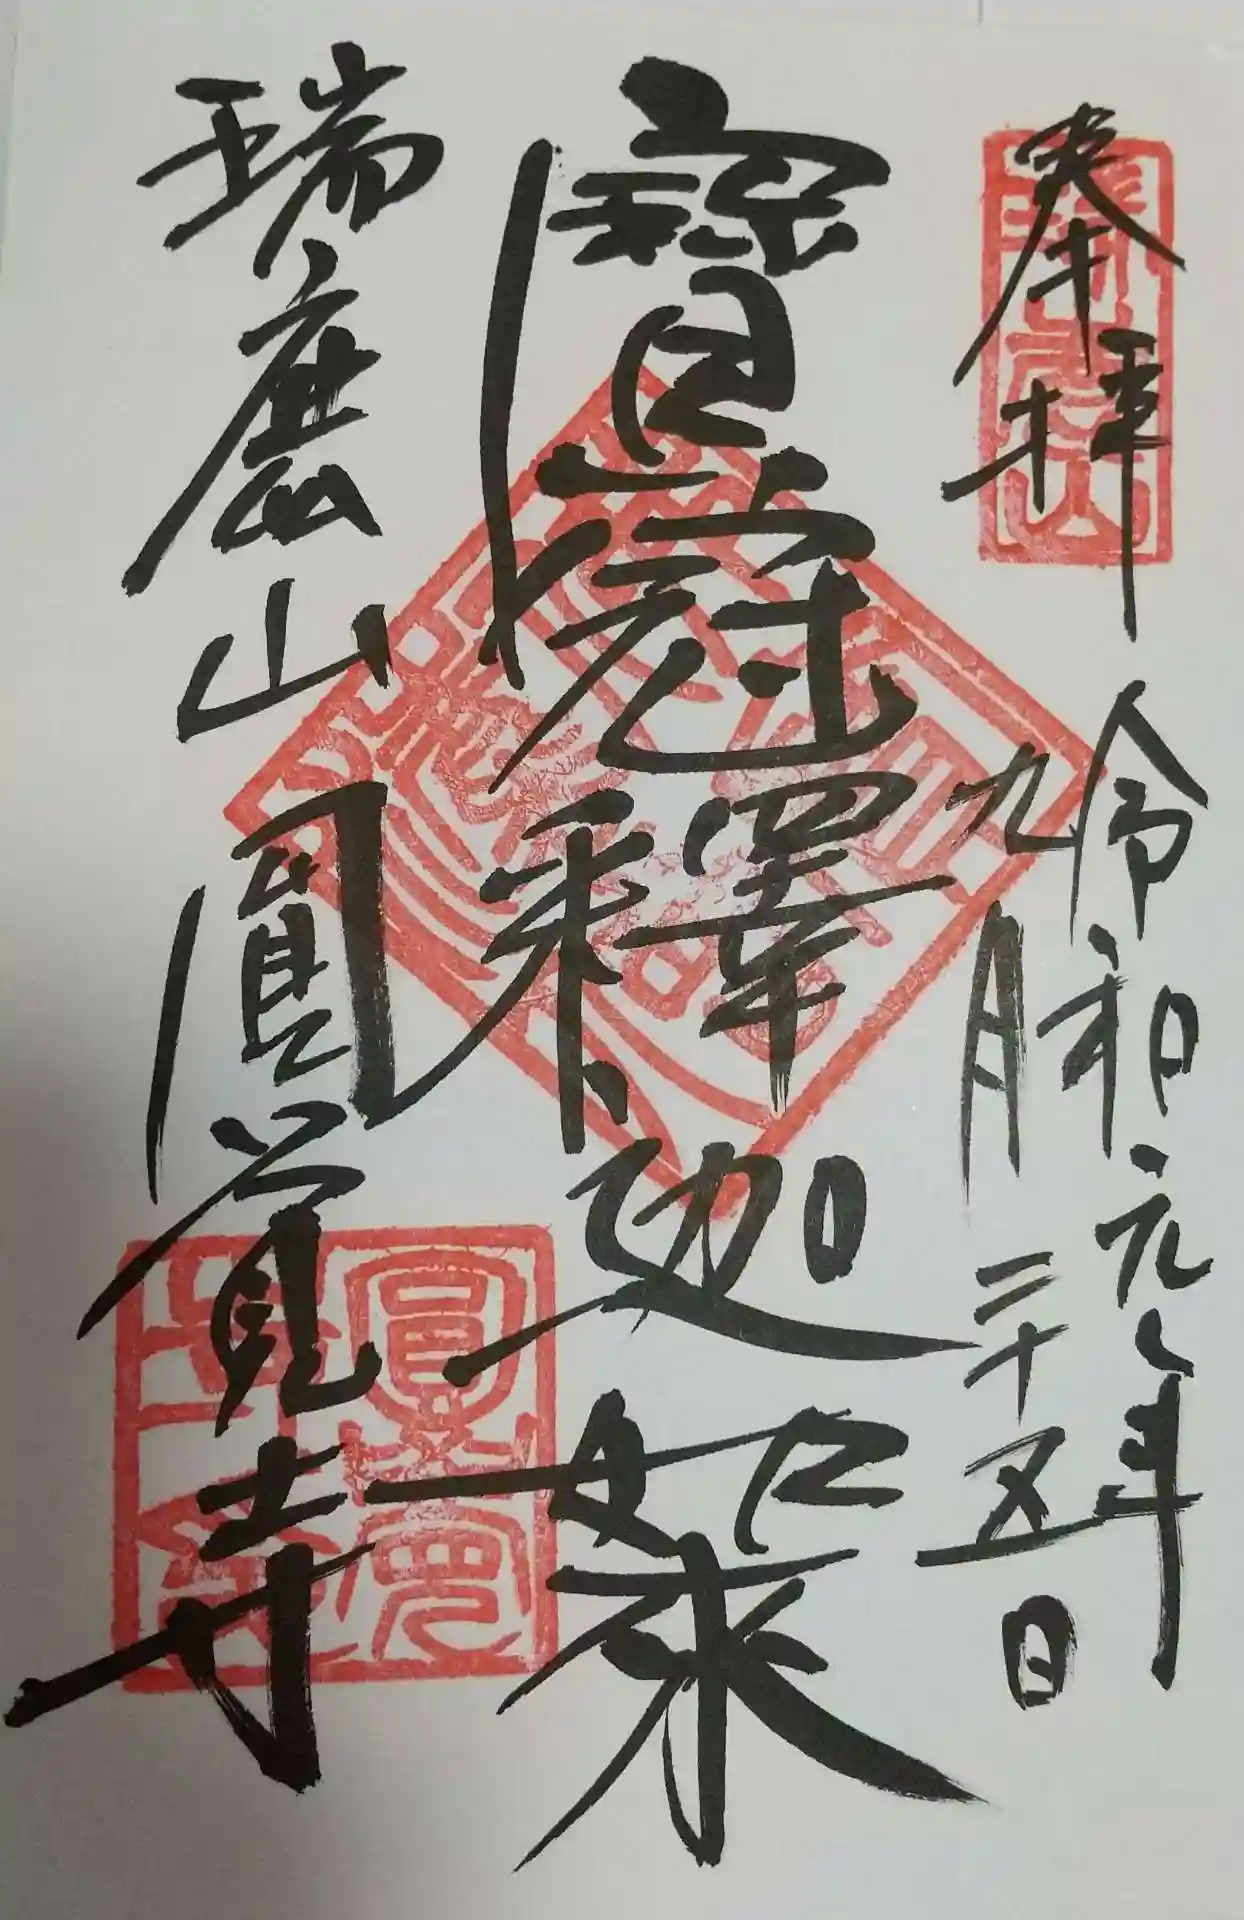 奉拝
令和元年
九月二十五日
寳冠釋迦如来
瑞鹿山
圓覚寺
瑞鹿山